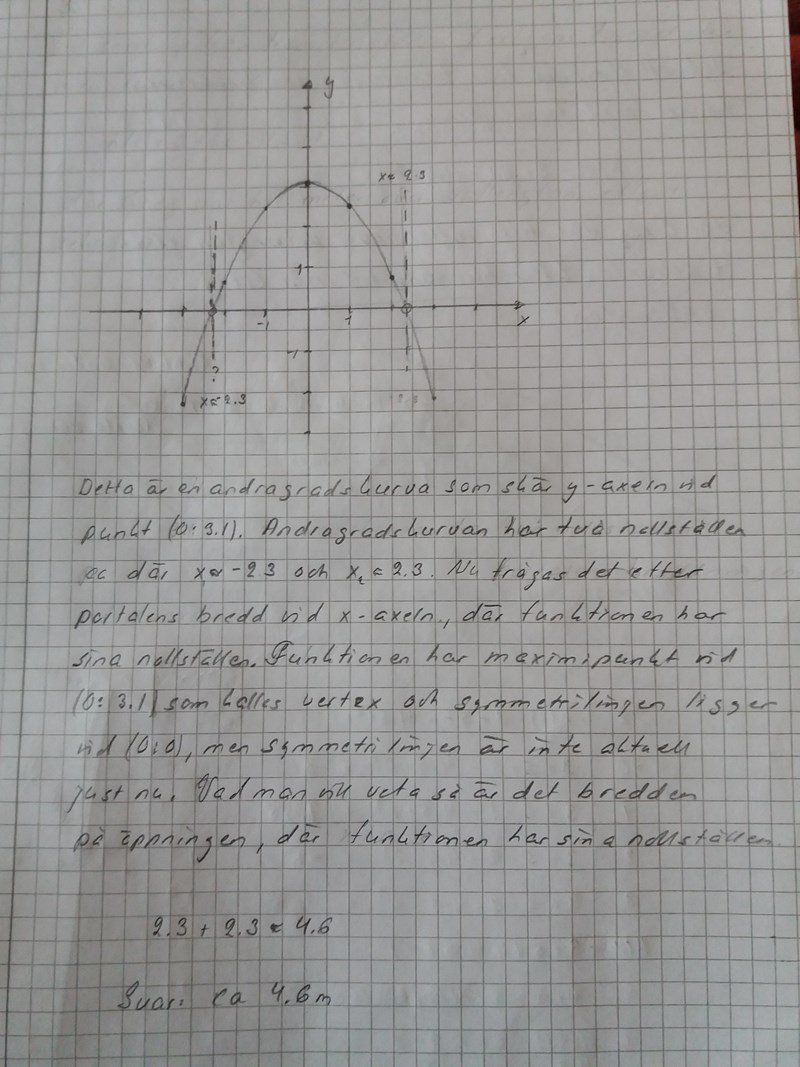 y
x≈ 2.3
1
-1
1
x
-1
?
x≈2.3
2.3
Detta är en andragradskurva som skär y-axeln vid
punkt (0:3.1). Andragradskurvan har två nollställen
där x≈-2.3 och x₂≈2.3. Nu frågas det efter
portalens bredd vid x-axeln, där funktionen har
sina nollställen. Funktionen har maximipunkt vid
(0:3.1) som kallas vertex och symmetrilinjen ligger
vid (0:0), men symmetrilinjen är inte aktuell
just nu. Vad man vill veta så är det bredden
på öppningen, där funktionen har sina nollställen.
2.3 + 2.3 ≈ 4.6
Svar: ca 4.6m